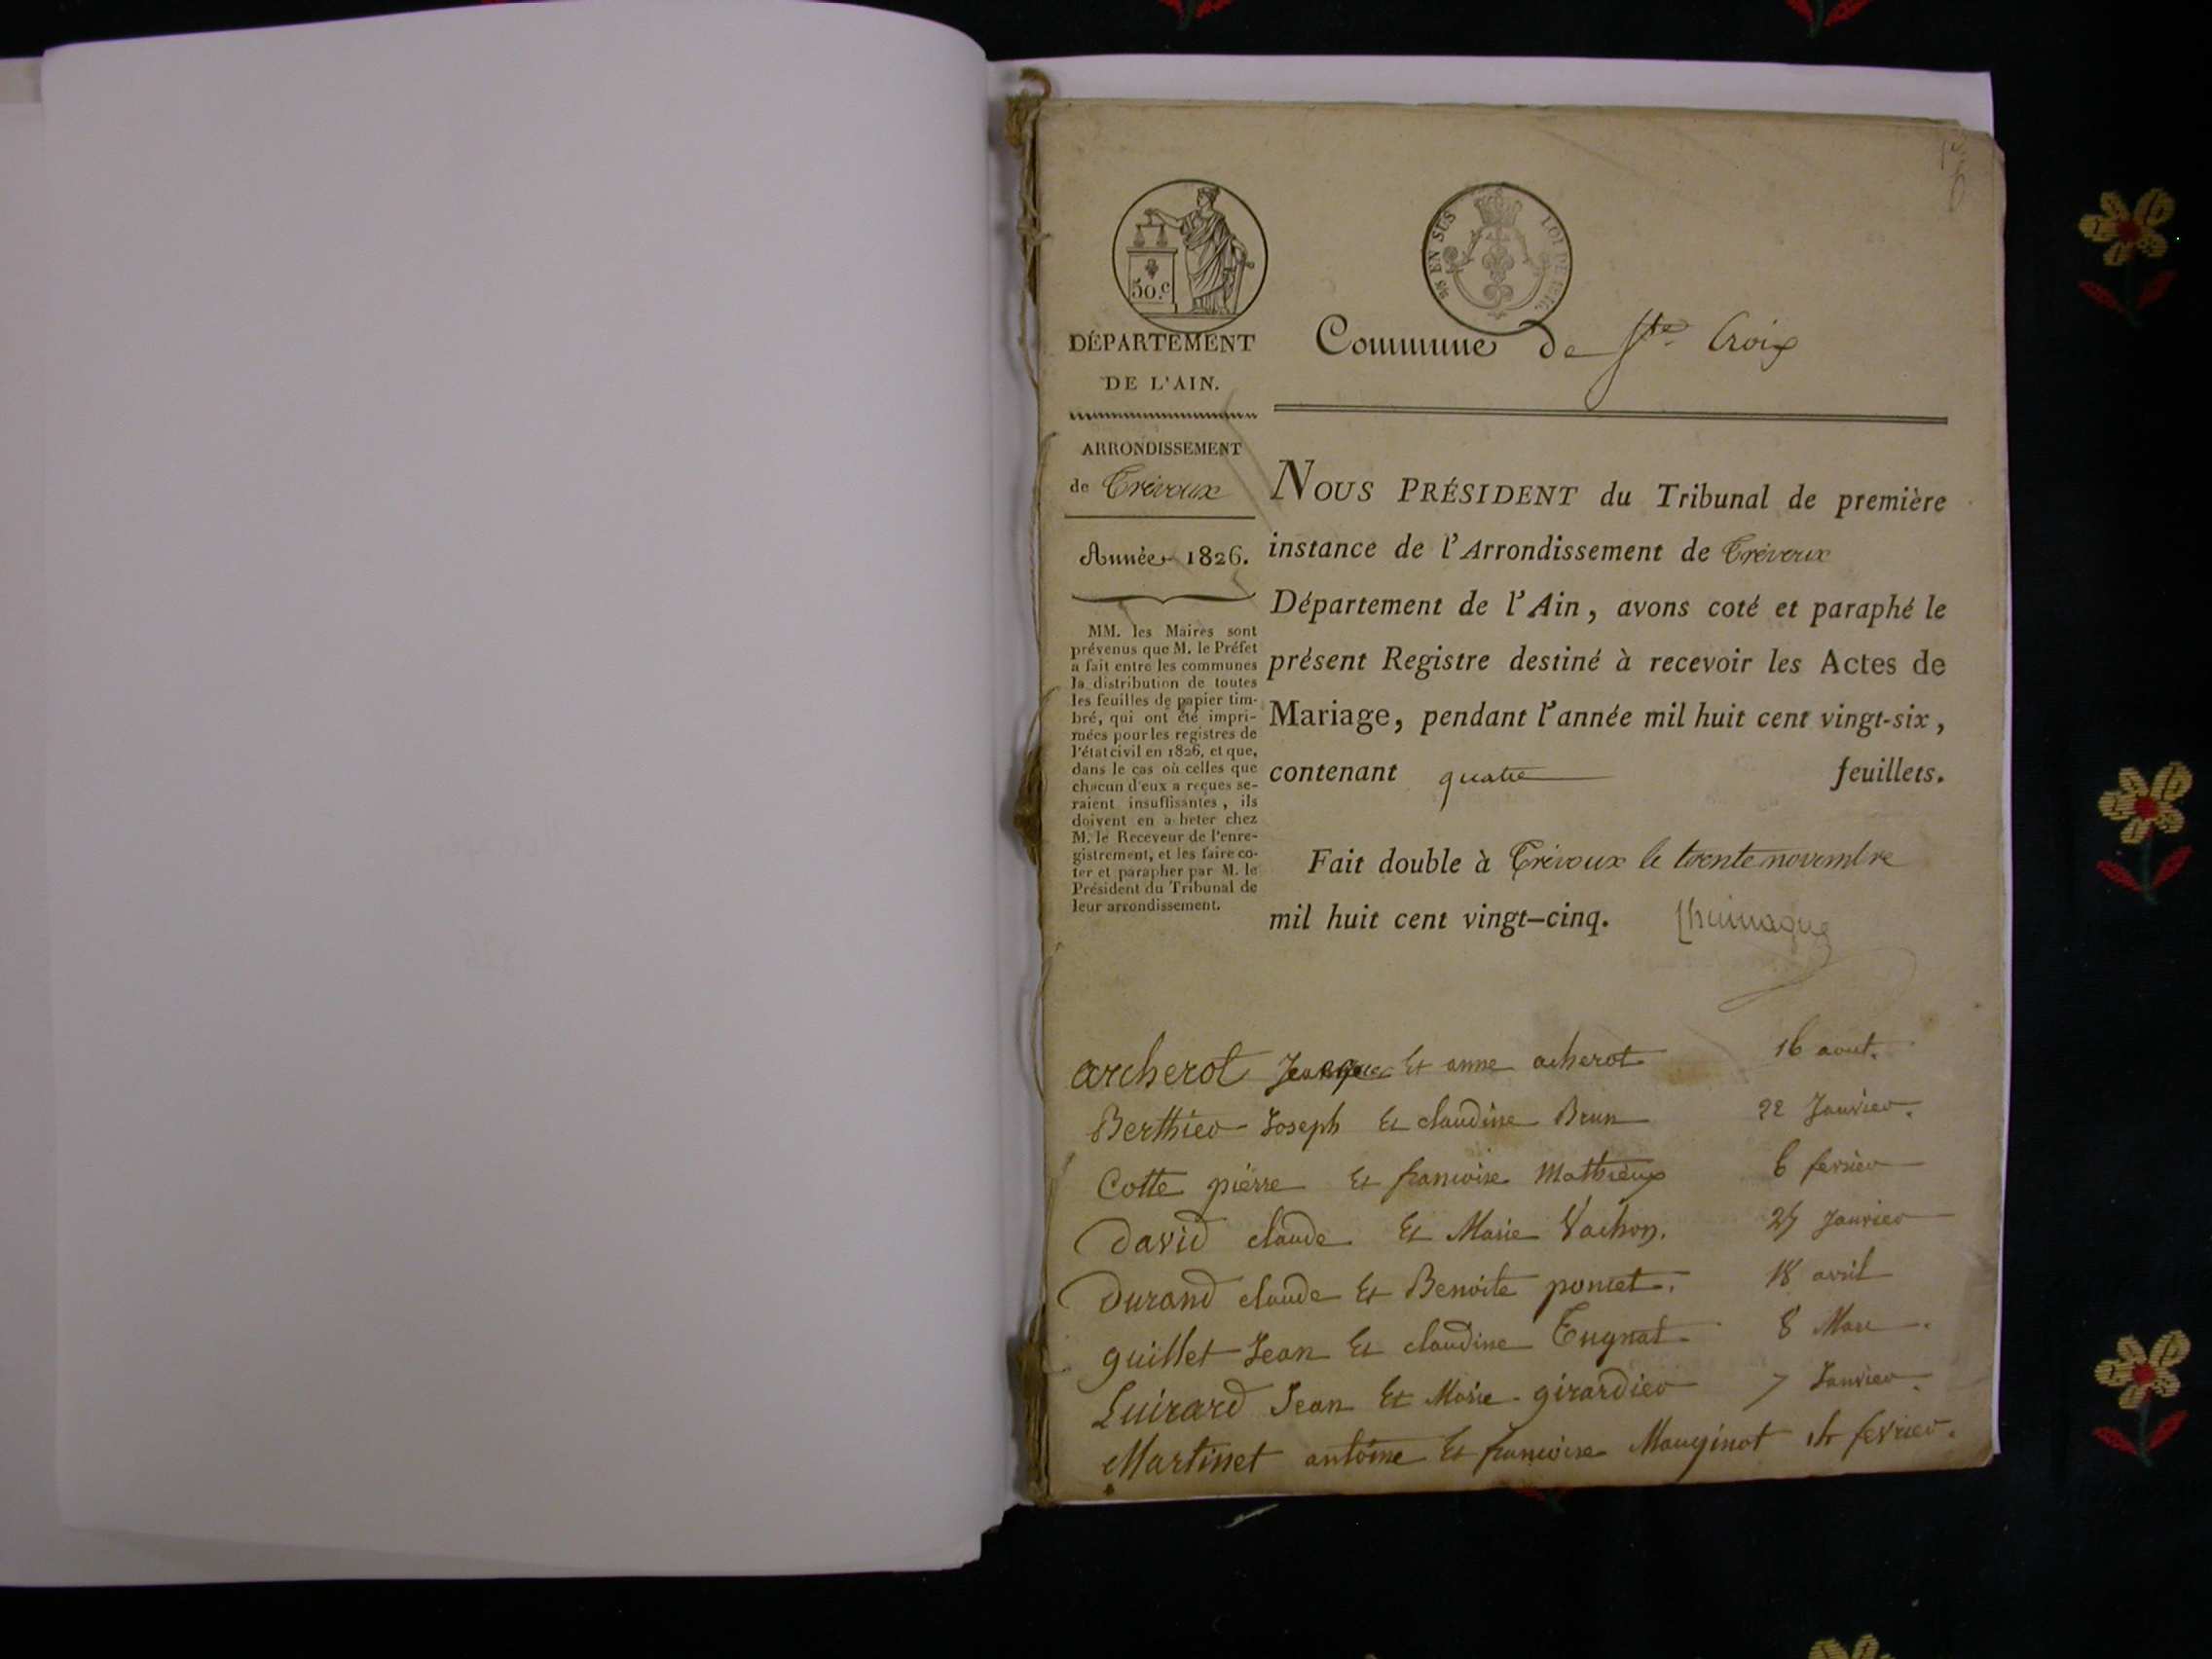 50.c
EN SUS
LOI DE
DÉPARTEMENT
DE L'AIN.
ARRONDISSEMENT
de Trévoux
Année 1826.
MM. les Maires sont
prévenus que M. le Préfet
a fait entre les communes
la distribution de toutes
les feuilles de papier tim-
bré, qui ont été impri-
mées pour les registres de
l'état civil en 1826, et que,
dans le cas où celles que
chacun d'eux a reçues se-
raient insuffisantes, ils
doivent en a heter chez
M. le Receveur de l'enre-
gistrement, et les faire co-
ter et parapher par M. le
Président du Tribunal de
leur arrondissement.
Commune de Ste Croix
NOUS PRÉSIDENT du Tribunal de première
instance de l'Arrondissement de Trévoux
Département de l'Ain, avons coté et paraphé le
présent Registre destiné à recevoir les Actes de
Mariage, pendant l'année mil huit cent vingt-six,
contenant quatre feuillets.
Fait double à Trévoux le trente novembre
mil huit cent vingt-cinq.
archerot Jacques Et anne acherot 16 aout.
Berthier Joseph Et claudine Brun 22 Janvier.
Cotte pierre Et francoise Mathieux 6 fevrier
David claude Et Marie Vachon. Janvier
Durand claude Et Benoite poncet. 18 avril
guillet Jean Et claudine 8 Mars.
Luirard Jean Et Marie girardier 7 Janvier.
Martinet antoine Et francoise Mauginot fevrier.